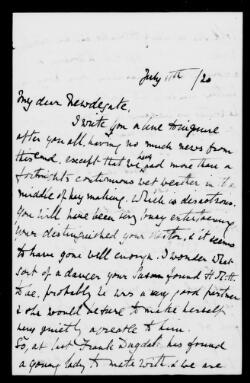 July 11th /20
My dear Newdegate,
I write you a line to inquire
after you all, having no much news from
this end, except that we have had more than a
fortnights continuous wet weather in the
middle of hay making, which is disastrous.
You will have been very busy entertaining
your distinguished visitor, & it seems
to have gone well enough. I wonder what
sort of a dancer your found H.R.H.
to be, probably he was a very good partner
& she would be sure to make herself
very quietly agreeable to him.
So, at last Frank Dugdale has found
a young lady to mate with & we are